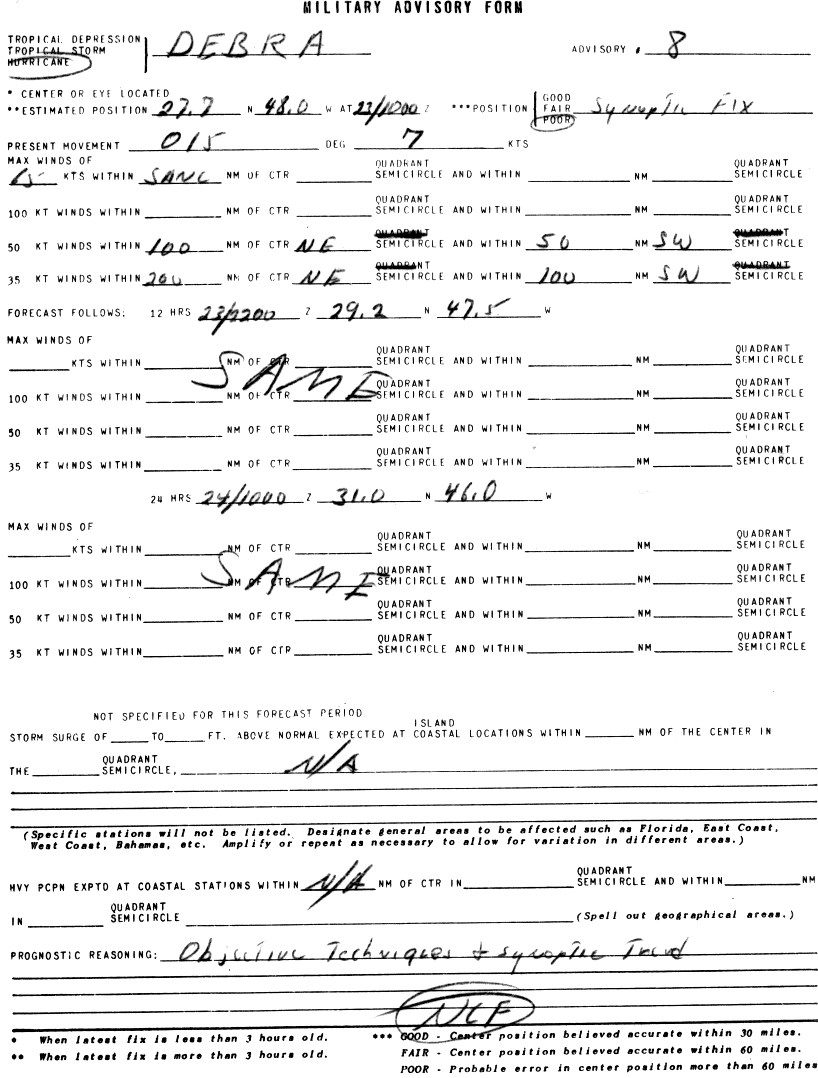 MILITARY ADVISORY FORM
TROPICAL DEPRESSION
TROPICAL STORM DEBRA ADVISORY # 8
HURRICANE
* CENTER OR EYE LOCATED
GOOD
**ESTIMATED POSITION 27.7 N 48.0 W AT 23/1000 Z ***POSITION FAIR Synoptic FIX
POOR
PRESENT MOVEMENT 015 DEG 7 KTS
MAX WINDS OF QUADRANT QUADRANT
65 KTS WITHIN NM OF CTR SEMICIRCLE AND WITHIN NM SEMICIRCLE
QUADRANT QUADRANT
100 KT WINDS WITHIN NM OF CTR SEMICIRCLE AND WITHIN NM SEMICIRCLE
QUADRANT QUADRANT
50 KT WINDS WITHIN 100 NM OF CTR NE SEMICIRCLE AND WITHIN 50 NM SW SEMICIRCLE
QUADRANT QUADRANT
35 KT WINDS WITHIN 200 NM OF CTR NE SEMICIRCLE AND WITHIN 100 NM SW SEMICIRCLE
FORECAST FOLLOWS: 12 HRS 23/2200 Z 29.2 N 47.5 W
MAX WINDS OF
QUADRANT QUADRANT
KTS WITHIN NM OF CTR SEMICIRCLE AND WITHIN NM SEMICIRCLE
SAME
QUADRANT QUADRANT
100 KT WINDS WITHIN NM OF CTR SEMICIRCLE AND WITHIN NM SEMICIRCLE
QUADRANT QUADRANT
50 KT WINDS WITHIN NM OF CTR SEMICIRCLE AND WITHIN NM SEMICIRCLE
QUADRANT QUADRANT
35 KT WINDS WITHIN NM OF CTR SEMICIRCLE AND WITHIN NM SEMICIRCLE
24 HRS 24/1000 Z 31.0 N 46.0 W
MAX WINDS OF
QUADRANT QUADRANT
KTS WITHIN NM OF CTR SEMICIRCLE AND WITHIN NM SEMICIRCLE
SAME
QUADRANT QUADRANT
100 KT WINDS WITHIN NM OF CTR SEMICIRCLE AND WITHIN NM SEMICIRCLE
QUADRANT QUADRANT
50 KT WINDS WITHIN NM OF CTR SEMICIRCLE AND WITHIN NM SEMICIRCLE
QUADRANT QUADRANT
35 KT WINDS WITHIN NM OF CTR SEMICIRCLE AND WITHIN NM SEMICIRCLE
NOT SPECIFIED FOR THIS FORECAST PERIOD
ISLAND
STORM SURGE OF TO FT. ABOVE NORMAL EXPECTED AT COASTAL LOCATIONS WITHIN NM OF THE CENTER IN
QUADRANT
THE SEMICIRCLE, N/A
(Specific stations will not be listed. Designate general areas to be affected such as Florida, East Coast,
West Coast, Bahamas, etc. Amplify or repeat as necessary to allow for variation in different areas.)
QUADRANT
HVY PCPN EXPTD AT COASTAL STATIONS WITHIN N/A NM OF CTR IN SEMICIRCLE AND WITHIN NM
QUADRANT
IN SEMICIRCLE (Spell out geographical areas.)
PROGNOSTIC REASONING: Objective Techniques + Synoptic Trend
* When latest fix is less than 3 hours old. *** GOOD - Center position believed accurate within 30 miles.
** When latest fix is more than 3 hours old. FAIR - Center position believed accurate within 60 miles.
POOR - Probable error in center position more than 60 miles